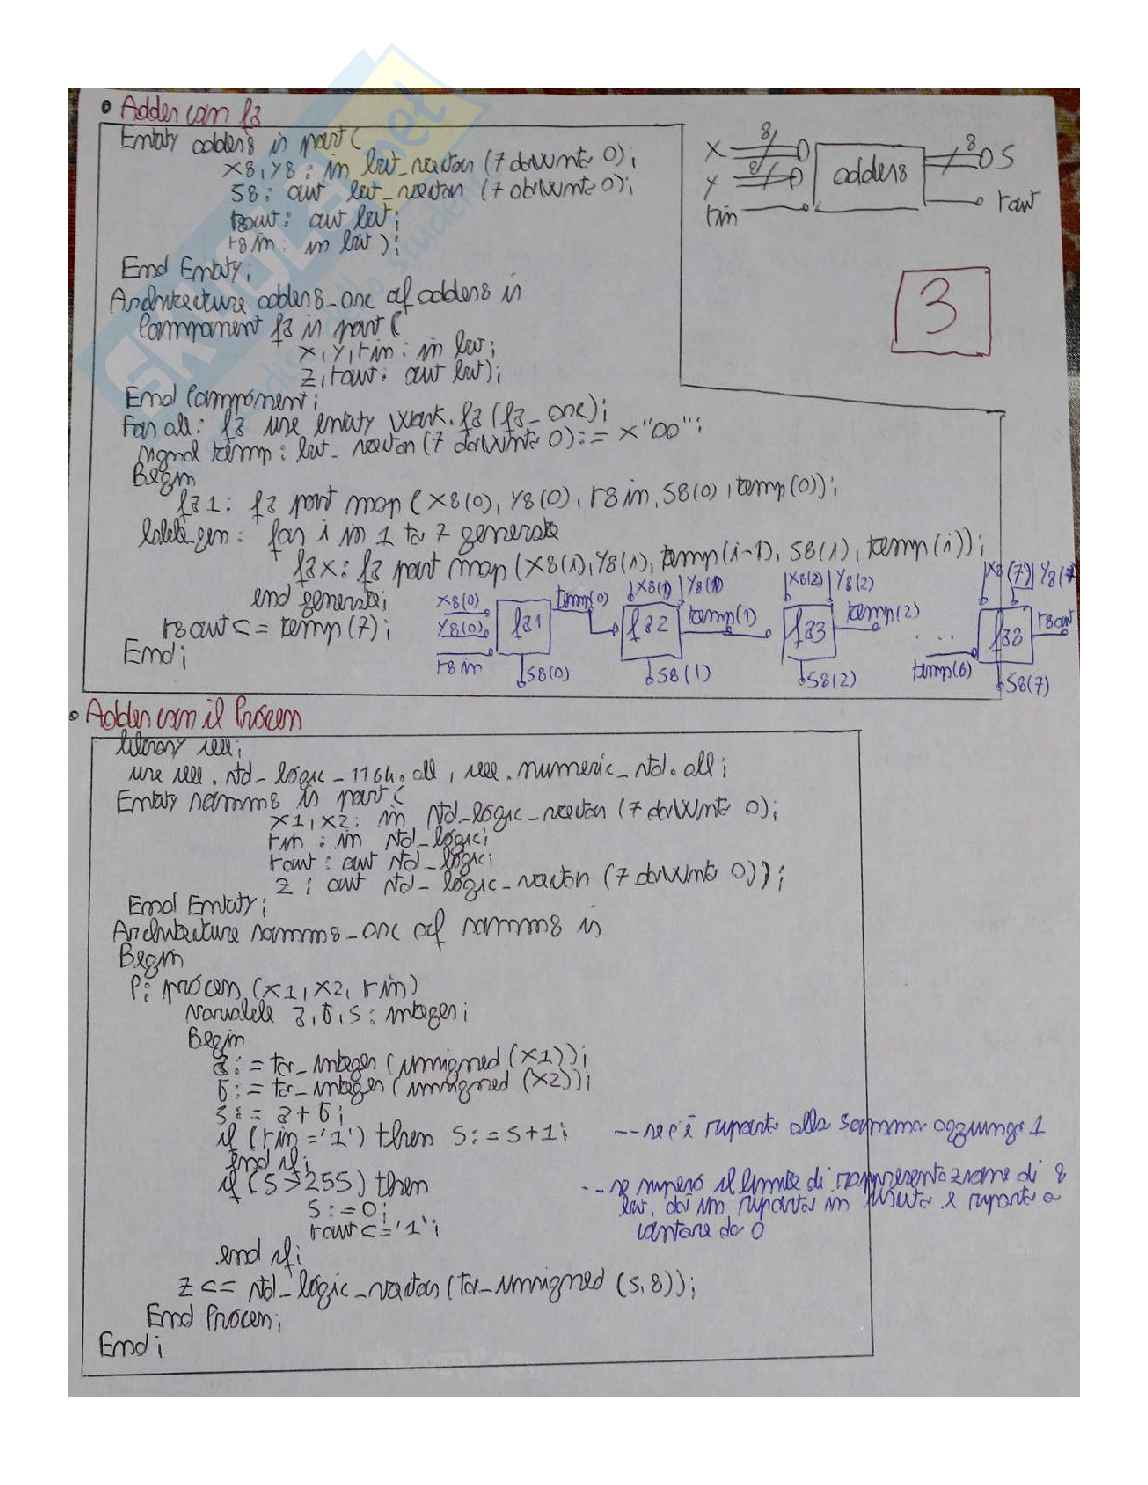 • Adder con fa
Entity adder8 is port(
x8,y8 : in bit_vector (7 downto 0);
s8 : out bit_vector (7 downto 0);
r8out : out bit;
r8in : in bit );
End Entity;
Architecture adder8_arc of adder8 is
Component fa is port(
x,y,rin : in bit;
z,rout : out bit);
End Component;
For all : fa use entity work.fa(fa_arc);
signal temp : bit_vector (7 downto 0) := x"00";
Begin
fa1 : fa port map (x8(0), y8(0), r8in, s8(0), temp(0));
label_gen : for i in 1 to 7 generate
fax : fa port map (x8(i), y8(i), temp(i-1), s8(i), temp(i));
end generate;
r8out <= temp(7);
End;
X 8
Y 8
rin
adder8
8 S
rout
3
x8(0)
y8(0)
r8in
fa1
s8(0)
temp(0)
x8(1) y8(1)
fa2
s8(1)
temp(1)
x8(2) y8(2)
fa3
s8(2)
temp(2)
. . .
temp(6)
x8(7) y8(7)
fa8
r8out
s8(7)
• Adder con il Process
library ieee;
use ieee.std_logic_1164.all, ieee.numeric_std.all;
Entity somm8 is port(
x1,x2 : in std_logic_vector (7 downto 0);
rin : in std_logic;
rout : out std_logic;
z : out std_logic_vector (7 downto 0));
End Entity;
Architecture somm8_arc of somm8 is
Begin
P: process (x1,x2,rin)
variable a,b,s : integer;
Begin
a := to_integer (unsigned (x1));
b := to_integer (unsigned (x2));
s := a+b;
if (rin='1') then s:=s+1; -- se c'è riporto alla somma aggiungo 1
end if;
if (s>255) then -- se supero il limite di rappresentazione di 8
s:=0; bit, dai un riporto in uscita e riparti a
rout<='1'; contare da 0
end if;
z <= std_logic_vector (to_unsigned (s,8));
End Process;
End;